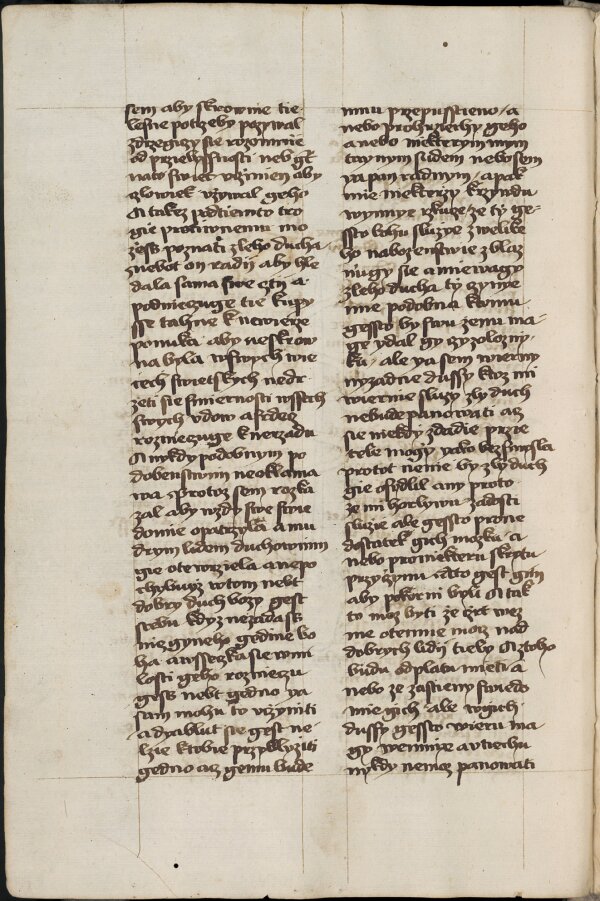 sem aby skrownie tie
lesne potrzeby pozywal
zdrzegizy sie rozomnie
od przielyssnosti neb gt
nato swiet vzinien aby
zlowiek vzywal geho
A takez podtiemto tro
gie protiwnemu mo
zess poznati zleho ducha
znebot on radij aby hle
dala sama swe czti a
podnieczuge tie kupy
sse tahne k newierze
ponuka aby neskrow
na byla wswych wie
czech swietskych nedr
zeti sie smiernosti wssech
swych vdow a srdcze
rozniczuge k nerzadu
A nykdy podobnym po
dobenstwim neoklama
wa Protoz sem rozka
zal aby wzdy swe swie
domie opatrzyla a mu
drym lidem duchownim
gie otewrziela a nepo
chybugiz wtom nebt
dobry duch bozy gest
stebu kdyz nezadass
nizgyneho gedine bo
ha a wsseczka sie wmi
losti geho roznieczu
gess nebt gedno ya
sam mohu to vczyniti
a dyablut sie gest ne
lzie ktobie przyblyziti
gedno acz gemu bude
mnu przepusstieno / a
nebo prohrziechy geho
a nebo niekterym mym
taynym sudem nebo sem
ya pan radinym / a pak
mie niekterzy krzywdu
wynnye rzkucze ze ty ge-
ssto bohu sluzye zwelike
ho nabozenstwie zblaz
nugy sie a mie wagy
zleho ducha ty czynye
mie podobna k tomu
gessto by swu zenu ma-
ge vdal gy czyzolozny-
ku / ale ya sem wierny
nyzadne dussy ktoz mi
wiernie sluzy zly duch
nebude panowati acz
sie niekdy zdadie przie
tele mogy yako bezsmysla
protot nenie by zly duch
gie osydlil any proto
ze mi horlywu zadosti
sluzie ale gessto pro ne
dostatek gich mozku a
nebo pro niekteru skrytu
przyczynu
aby pokorni byli A tak
to moz byti ze czrt wez
me otemnie mocz nad
dobrych lidij tiely A ztoho
budu odplatu mieti a
nebo ze zastieny swiedo
mie gich ale wgich
dussy gessto wieru ma-
gy wemnye a vtiechu
nykdy nemoz panowati